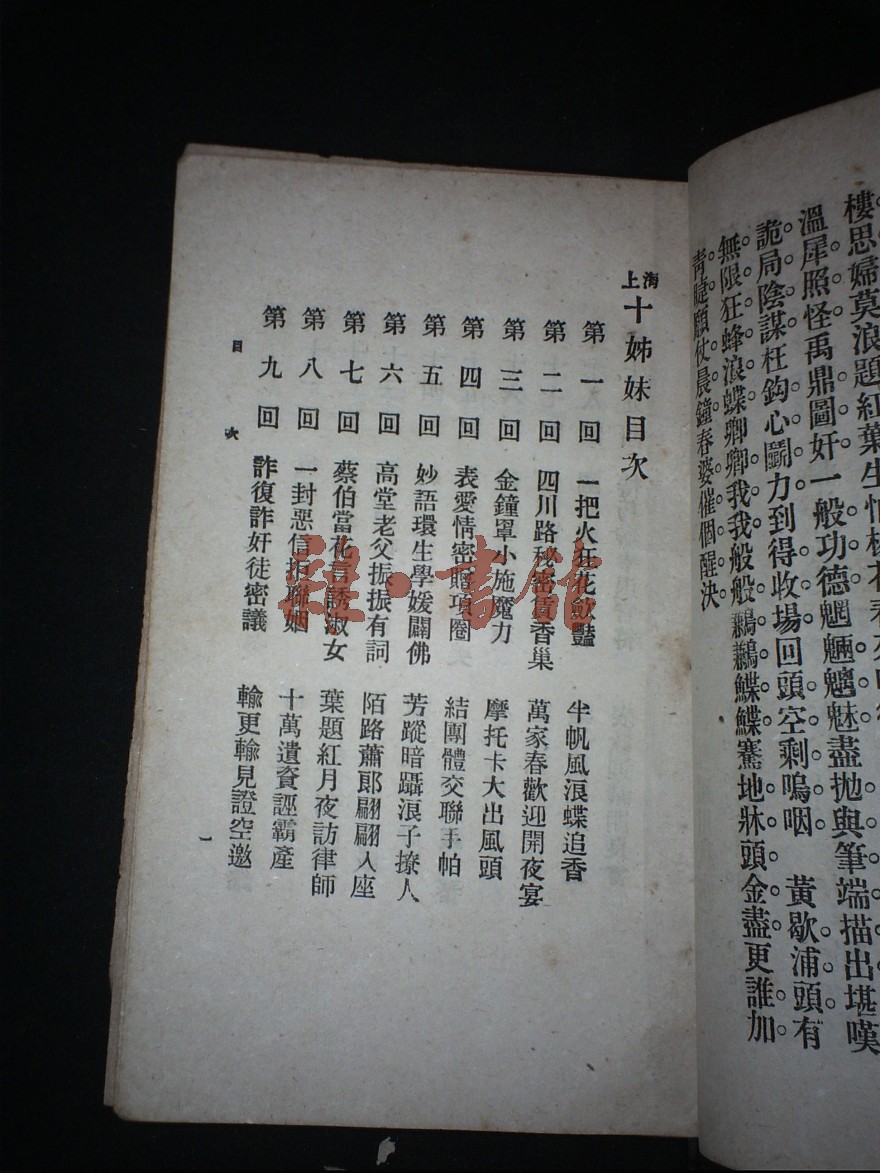 樓思婦莫浪題紅葉生怕楊花
溫犀照怪禹鼎圖奸一般功德魍魎魑魅盡拋與筆端描出堪嘆
詭局陰謀枉鈎心鬭力到得收場回頭空剩嗚咽 黃歇浦頭有
無限狂蜂浪蝶卿卿我我般般鶼鶼鰈鰈驀地牀頭金盡更誰加
青睫願仗晨鐘春婆催個醒決
海上十姊妹目次
第一回 一把火狂花斂豔 半帆風浪蝶追香
第二回 四川路秘密賃香巢 萬家春歡迎開夜宴
第三回 金鐘罩小施魔力 摩托卡大出風頭
第四回 表愛情密贈項圈 結團體交聯手帕
第五回 妙語環生學媛闢佛 芳蹤暗躡浪子撩人
第六回 高堂老父振振有詞 陌路蕭郎翩翩入座
第七回 蔡伯當花言誘淑女 葉題紅月夜訪律師
第八回 一封惡信拒聯姻 十萬遺資誣霸產
第九回 詐復詐奸徒密議 輸更輸見證空邀
目次
一